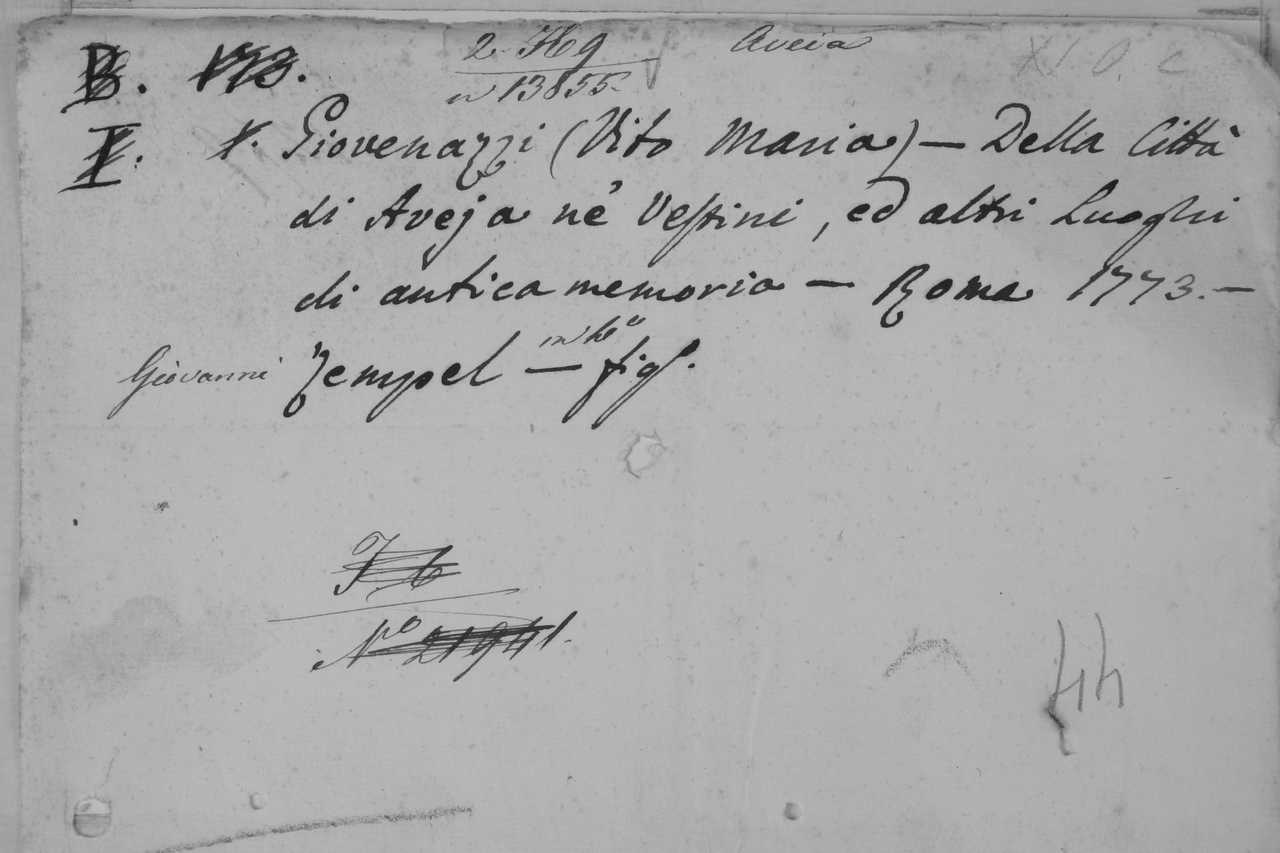 2 Hg Aveia XI. O. c
B. 173. n 13855
I. 1. Giovenazzi (Vito Maria) — Della Città
di Aveja ne' Vestini, ed altri Luoghi
di antica memoria — Roma 1773. —
Giovanni Zempel — in 4º fig.
N.º 21941.
44